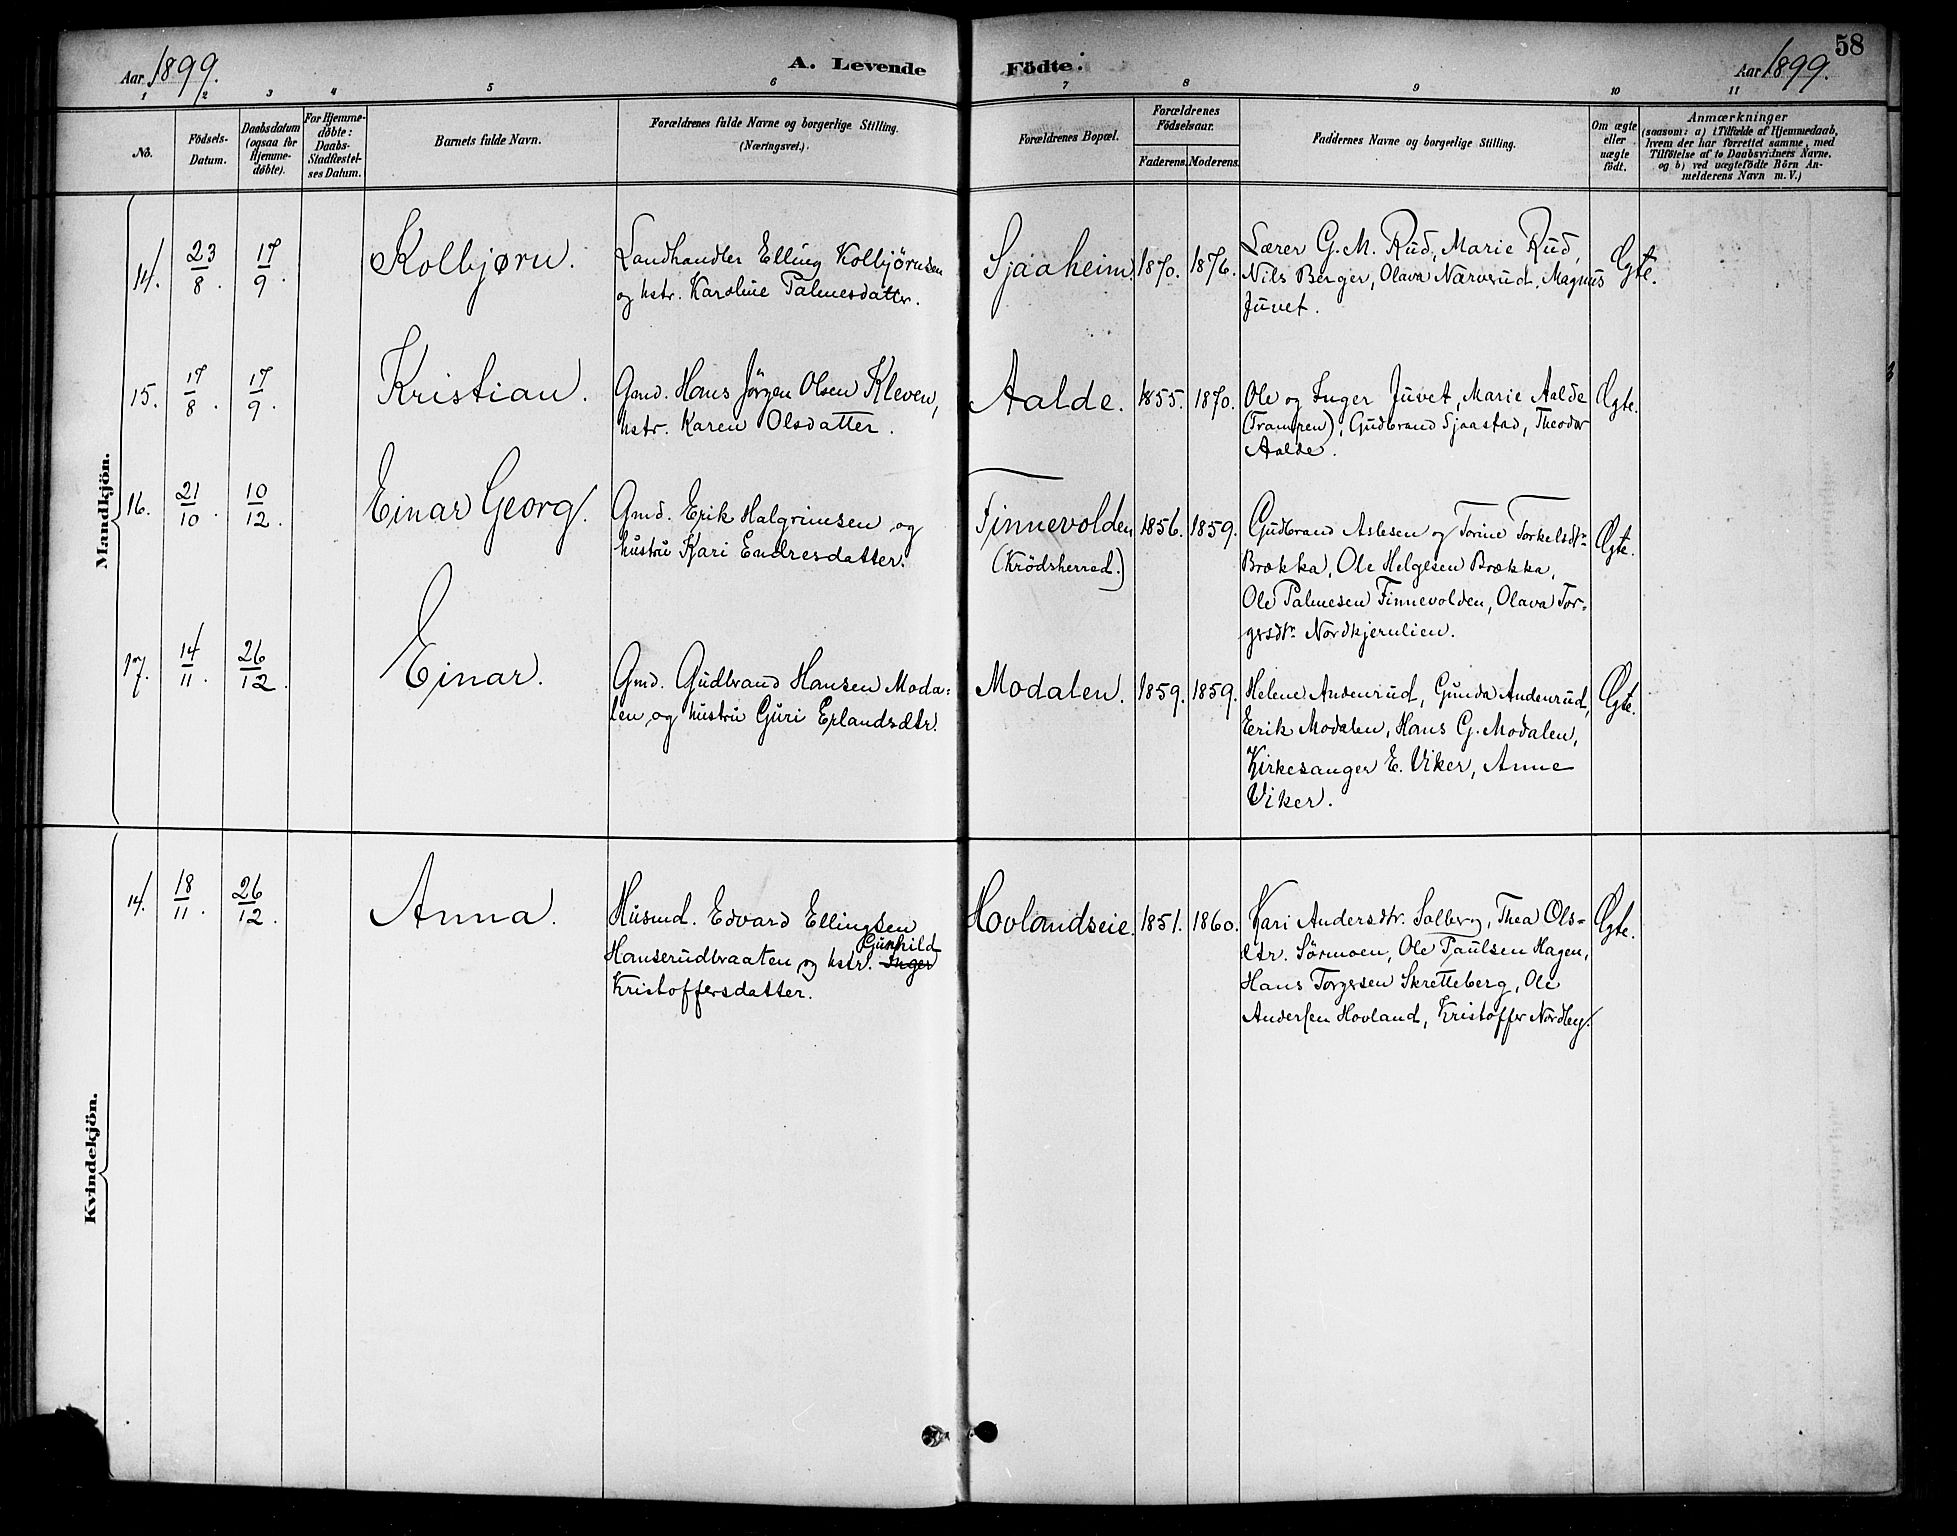 Aar 1899.
A. Levende
Födte.
Aar 1899.
58
1 2 3 4 5 6 7 8 9 10 11
No.
Födsels-
Datum.
Daabsdatum
(ogsaa for
Hjemme-
døbte).
For Hjemme-
døbte:
Daabs-
Stadfæstel-
ses Datum.
Barnets fulde Navn.
Forældrenes fulde Navne og borgerlige Stilling.
(Næringsvei.)
Forældrenes Bopæl.
Forældrenes
Födselsaar.
Faderens. Moderens.
Faddernes Navne og borgerlige Stilling.
Om ægte
eller
uægte
født.
Anmærkninger
(saasom: a) i Tilfælde af Hjemmedaab,
hvem der har forrettet samme, med
Tilföielse af to Daabsvidners Navne,
og b) ved uægtefödte Börn An-
melderens Navn m. V.)
Mandkjön.
14. 23/8. 17/9. Kolbjørn.
Landhandler Elling Kolbjørnsen
og hstr. Karoline Palmesdatter.
Sjaaheim. 1870. 1876.
Lærer G. M. Rud, Marie Rud,
Nils Berger, Olava Nærverud, Magnus
Juvet.
Ægte.
15. 17/8. 17/9. Kristian.
Gmd. Hans Jörgen Olsen Kleven,
hstr. Karen Olsdatter.
Aalde. 1855. 1870.
Ole og Inger Juvet, Marie Aalde
(Trampen), Gudbrand Sjaastad, Theodor
Aalde.
Ægte.
16. 21/10. 10/12. Einar Georg.
Gmd. Erik Halgrimsen og
hustru Kari Endresdatter.
Finnevolden
(Krödsherred.)
1856. 1859.
Gudbrand Aslesen og Torine Torkelsdtr.
Brækka, Ole Helgesen Brækka,
Ole Palmesen Finnevolden, Olava Tor=
gersdtr. Nordkjernlien.
Ægte.
17. 14/11. 26/12. Einar.
Gmd. Gudbrand Hansen Moda=
len og hustru Guri Erlandsdtr.
Modalen. 1859. 1859.
Helene Andenrud, Gunda Andenrud,
Erik Modalen, Hans G. Modalen,
Kirkesanger E. Viker, Anne
Viker.
Ægte.
Kvindekjön.
14. 18/11. 26/12. Anna.
Husmd. Edvard Ellingsen
Gunhild
Hanserudbraaten og hstr. Inger
Kristoffersdatter.
Hovlandseie. 1851. 1860.
Kari Andersdtr. Solberg, Thea Ols=
dtr. Sörmoen, Ole Paulsen Hagen,
Hans Torgersen Skretteberg, Ole
Andersen Hovland, Kristoffer Nordby.
Ægte.